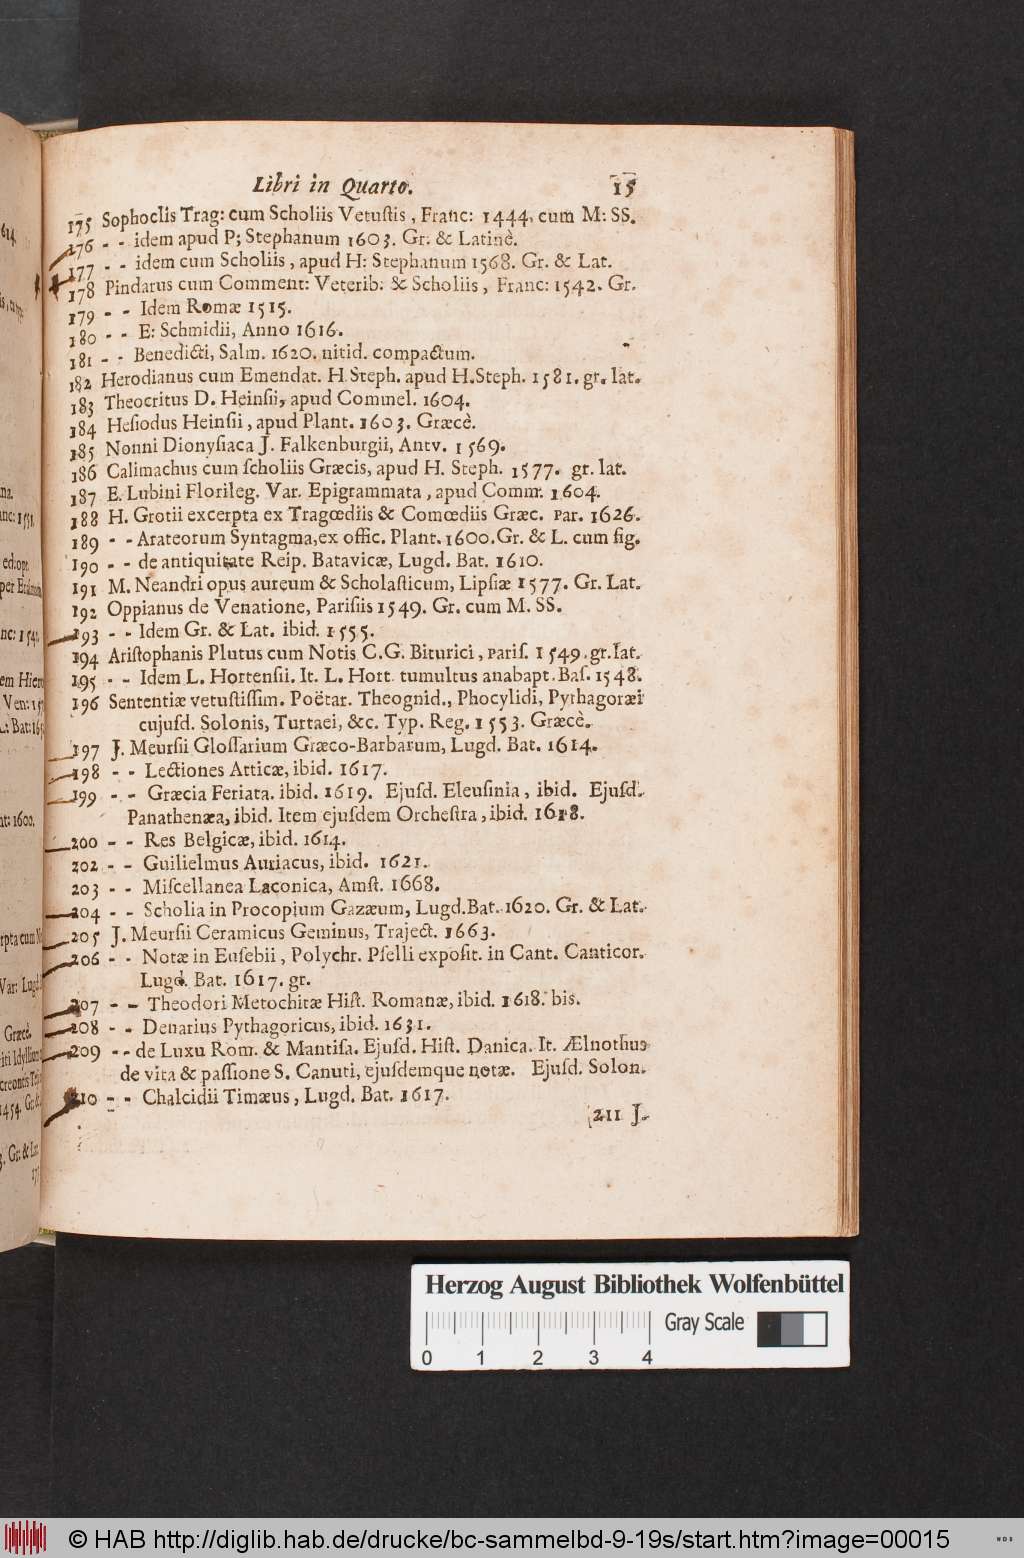 Libri in Quarto. 15
175 Sophoclis Trag: cum Scholiis Vetuſtis, Franc: 1444, cum M: SS.
176 - - idem apud P; Stephanum 1603. Gr. & Latinè.
177 - - idem cum Scholiis, apud H: Stephanum 1568. Gr. & Lat.
178 Pindarus cum Comment: Veterib: & Scholiis, Franc: 1542. Gr.
179 - - Idem Romæ 1515.
180 - - E: Schmidii, Anno 1616.
181 - - Benedicti, Salm. 1620. nitid. compactum.
182 Herodianus cum Emendat. H. Steph. apud H. Steph. 1581. gr. lat.
183 Theocritus D. Heinſii, apud Commel. 1604.
184 Heſiodus Heinſii, apud Plant. 1603. Græcè.
185 Nonni Dionyſiaca J. Falkenburgii, Antv. 1569.
186 Calimachus cum ſcholiis Græcis, apud H. Steph. 1577. gr. lat.
187 E. Lubini Florileg. Var. Epigrammata, apud Comm. 1604.
188 H. Grotii excerpta ex Tragœdiis & Comœdiis Græc. Par. 1626.
189 - - Arateorum Syntagma, ex offic. Plant. 1600. Gr. & L. cum fig.
190 - - de antiquitate Reip. Batavicæ, Lugd. Bat. 1610.
191 M. Neandri opus aureum & Scholaſticum, Lipſiæ 1577. Gr. Lat.
192 Oppianus de Venatione, Pariſiis 1549. Gr. cum M. SS.
193 - - Idem Gr. & Lat. ibid. 1555.
194 Ariſtophanis Plutus cum Notis C. G. Biturici, Pariſ. 1549. gr. lat.
195 - - Idem L. Hortenſii. It. L. Hort. tumultus anabapt. Baſ. 1548.
196 Sententiæ vetuſtiſſim. Poëtar. Theognid., Phocylidi, Pythagoræi
cujuſd. Solonis, Turtaei, &c. Typ. Reg. 1553. Græcè.
197 J. Meurſii Gloſſarium Græco-Barbarum, Lugd. Bat. 1614.
198 - - Lectiones Atticæ, ibid. 1617.
199 - - Græcia Feriata. ibid. 1619. Ejuſd. Eleuſinia, ibid. Ejuſd.
Panathenæa, ibid. Item ejuſdem Orcheſtra, ibid. 1618.
200 - - Res Belgicæ, ibid. 1614.
202 - - Guilielmus Auriacus, ibid. 1621.
203 - - Miſcellanea Laconica, Amſt. 1668.
204 - - Scholia in Procopium Gazæum, Lugd. Bat. 1620. Gr. & Lat.
205 J. Meurſii Ceramicus Geminus, Traject. 1663.
206 - - Notæ in Euſebii, Polychr. Pſelli expoſit. in Cant. Canticor.
Lugd. Bat. 1617. gr.
207 - - Theodori Metochitæ Hiſt. Romanæ, ibid. 1618. bis.
208 - - Denarius Pythagoricus, ibid. 1631.
209 - - de Luxu Rom. & Mantiſa. Ejuſd. Hiſt. Danica. It. Ælnothus
de vita & paſſione S. Canuti, ejuſdemque notæ. Ejuſd. Solon.
210 - - Chalcidii Timæus, Lugd. Bat. 1617.
211 J.
Herzog August Bibliothek Wolfenbüttel
Gray Scale
0 1 2 3 4
© HAB http://diglib.hab.de/drucke/bc-sammelbd-9-19s/start.htm?image=00015